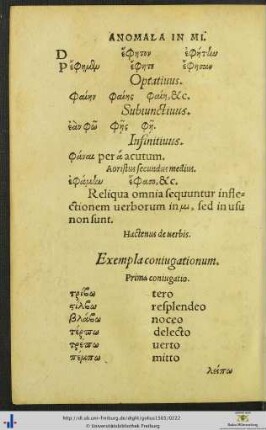 ANOMALA IN MI.
D ἔφητον ἐφήτην
P ἔφημεν ἔφητε ἔφησαν
Optatiuus.
φαίην φαίης φαίη, &c.
Subiunctiuus.
ἐὰν φῶ φῇς φῇ.
Infinitiuus.
φάναι per ά acutum.
Aoristus secundus medius.
ἐφάμην ἔφασο, &c.
Reliqua omnia sequuntur infle-
ctionem uerborum in μι, sed in usu
non sunt.
Hactenus de uerbis.
Exempla coniugationum.
Prima coniugatio.
τρίβω tero
στίλβω resplendeo
βλάβω noceo
τέρπω delecto
τρέπω uerto
πέμπω mitto
λείπω
http://dl.ub.uni-freiburg.de/diglit/gretius1565/0222
© Universitätsbibliothek Freiburg